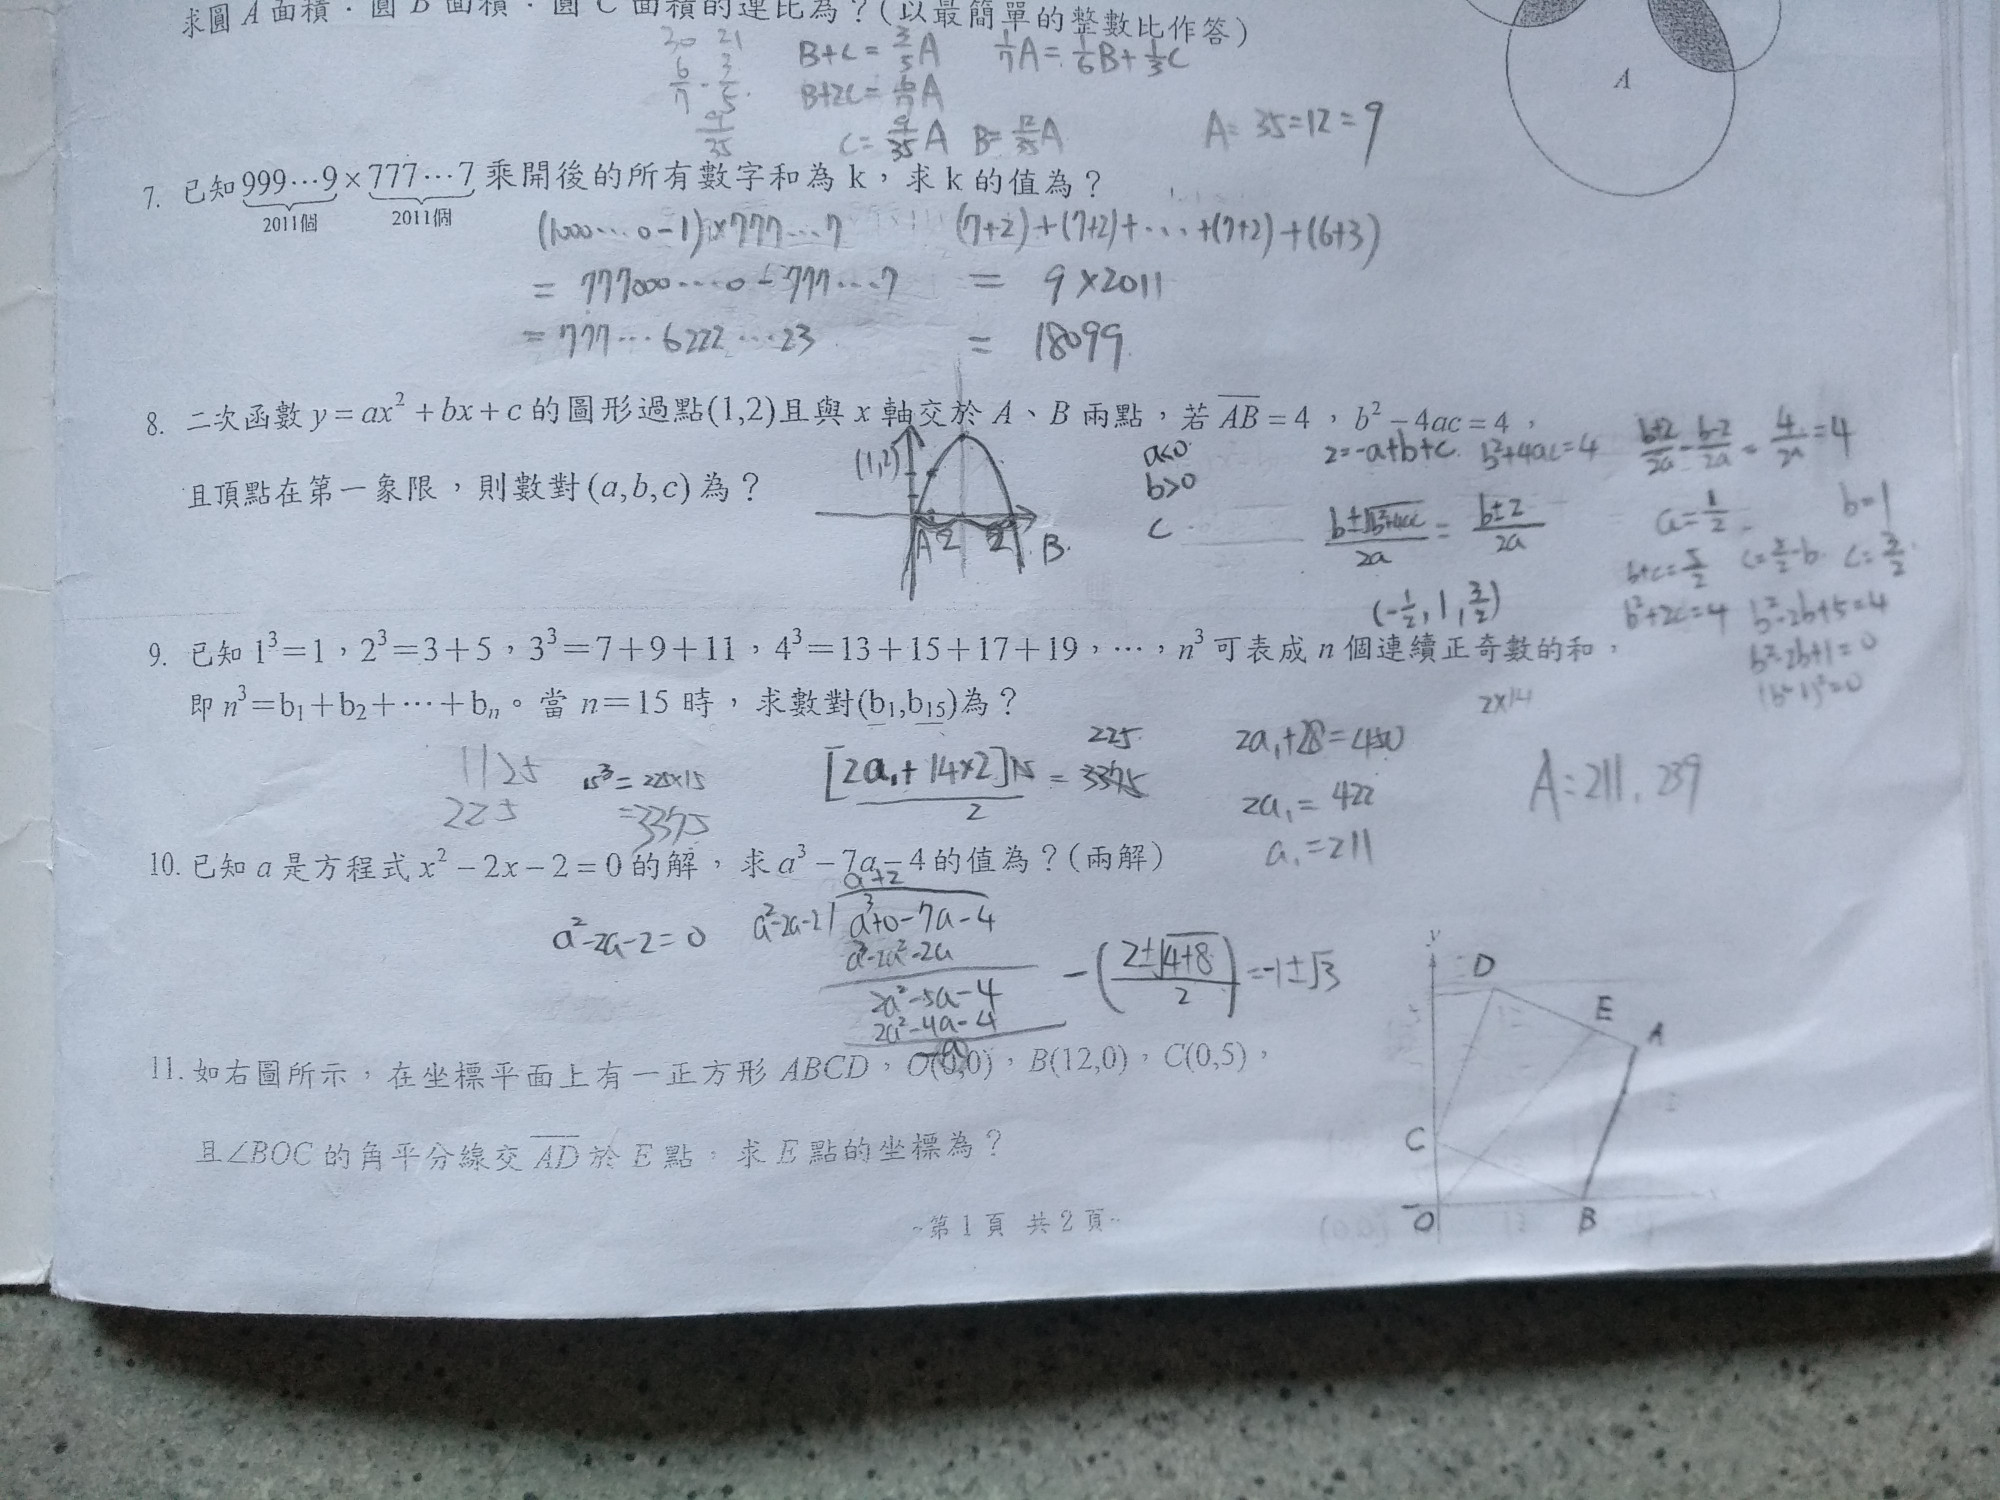 求圓 A 面積：圓 B 面積：圓 C 面積的連比為？(以最簡單的整數比作答)
30 21
6/7 - 3/5
9/35
B+C = 3/5 A
B+2C = 6/7 A
C = 9/35 A B = 12/35 A
1/7 A = 1/6 B + 1/3 C
A = 35=12=9
A
7. 已知 999⋯9 × 777⋯7 乘開後的所有數字和為 k，求 k 的值為？
2011個 2011個
(1000⋯0-1)×777⋯7
= 777000⋯0-777⋯7
= 777⋯6222⋯23
(7+2)+(7+2)+⋯+(7+2)+(6+3)
= 9×2011
= 18099
8. 二次函數 y = ax² + bx + c 的圖形過點(1,2)且與 x 軸交於 A、B 兩點，若 AB = 4，b² - 4ac = 4，
且頂點在第一象限，則數對 (a,b,c) 為？
(1,2)
A 2 2 B
a<0
b>0
c
2=-a+b+c b²+4ac=4
(b±√(b²+4ac))/2a = (b±2)/2a
(-1/2, 1, 3/2)
(b+2)/2a - (b-2)/2a = 4/2a = 4
a = 1/2 b=1
b+c=5/2 c=5/2-b c=3/2
b²+2c=4 b²-2b+5=4
b²-2b+1=0
(b-1)²=0
9. 已知 1³=1，2³=3+5，3³=7+9+11，4³=13+15+17+19，⋯，n³ 可表成 n 個連續正奇數的和，
即 n³=b₁+b₂+⋯+bₙ。當 n=15 時，求數對(b₁,b₁₅)為？
2×14
1125
225
15³=225×15
=3375
[2a₁+14×2]15/2 = 3375
225
2a₁+28=450
2a₁=422
a₁=211
A=211, 239
10. 已知 a 是方程式 x² - 2x - 2 = 0 的解，求 a³ - 7a - 4 的值為？(兩解)
a²-2a-2=0
a+2
a²-2a-2 ) a³+0-7a-4
a³-2a²-2a
2a²-5a-4
2a²-4a-4
-a
-((2±√(4+8))/2) = -1±√3
11. 如右圖所示，在坐標平面上有一正方形 ABCD，O(0,0)，B(12,0)，C(0,5)，
且∠BOC 的角平分線交 AD 於 E 點，求 E 點的坐標為？
y
D
E
A
C
O
B
~第 1 頁 共 2 頁~